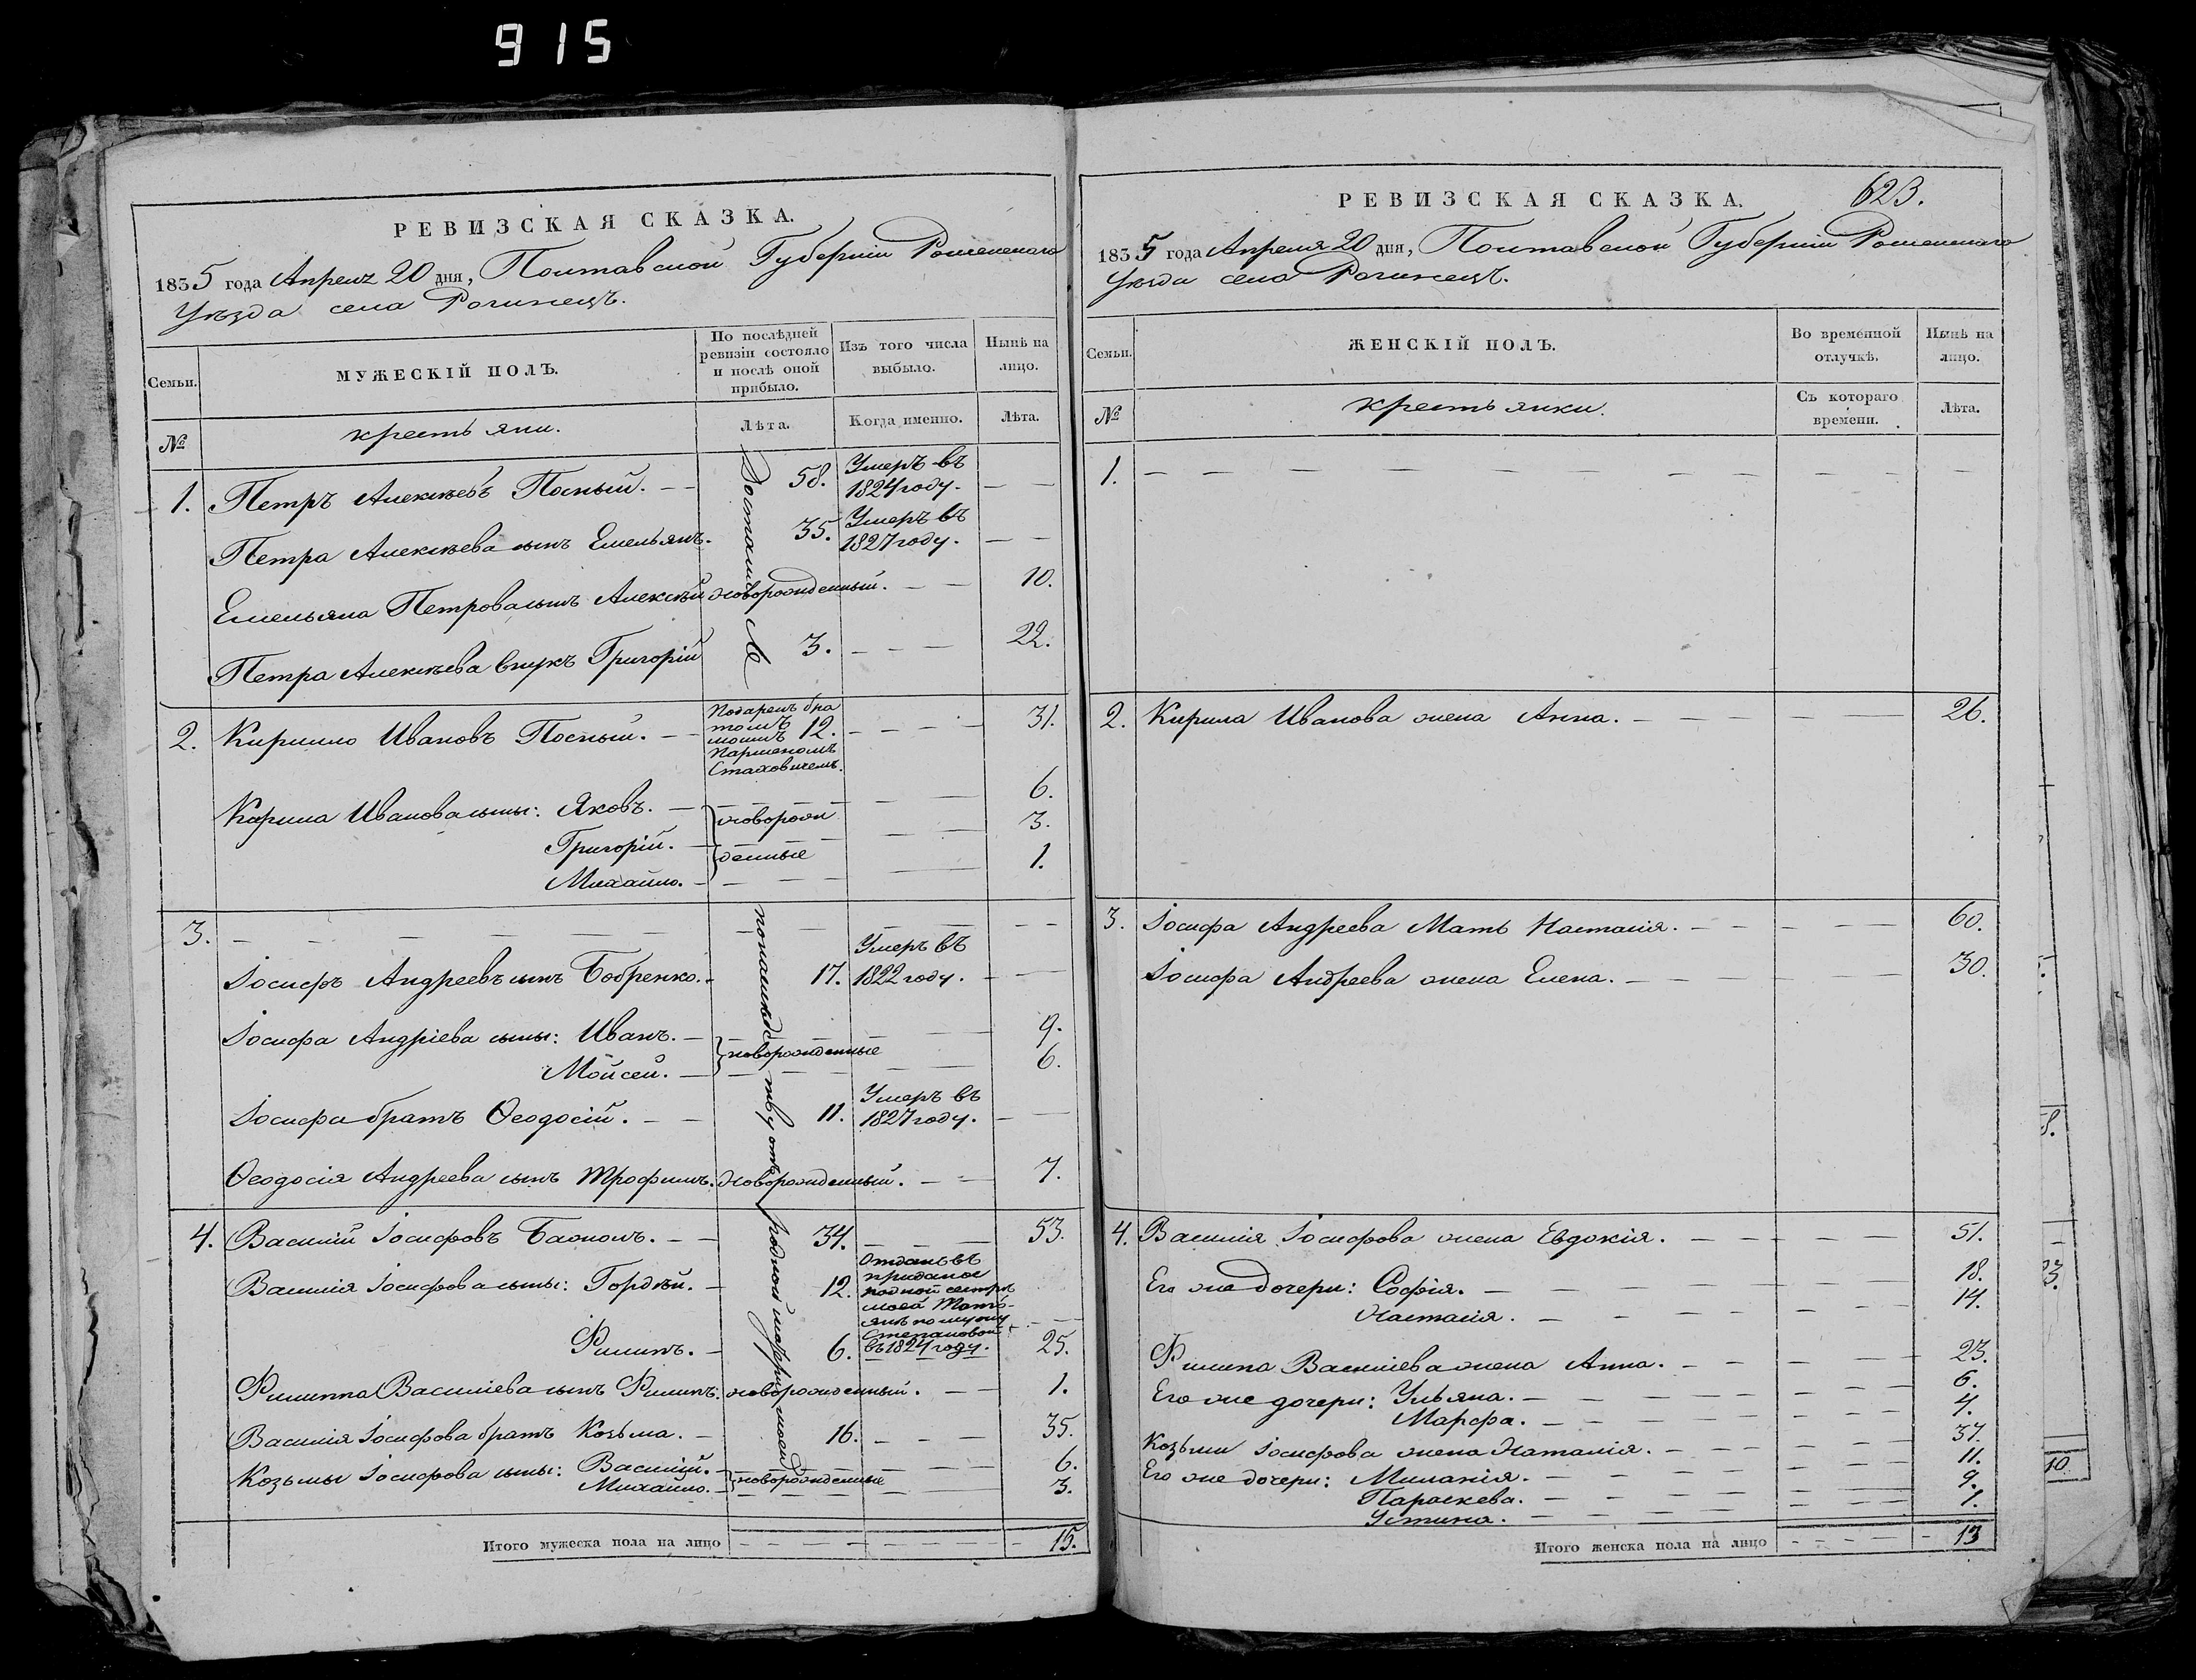 915
РЕВИЗСКАЯ СКАЗКА.
1835 года Апреля 20 дня, Полтавской Губерніи Роменскаго
Уѣзда села Рогинецъ.
Семьи.
МУЖЕСКІЙ ПОЛЪ.
По послѣдней ревизіи состояло и послѣ оной прибыло.
Изъ того числа выбыло.
Нынѣ на лицо.
№
крестьяни.
Лѣта.
Когда именно.
Лѣта.
Достались
по наслѣдству отъ родной матери моей
1. Петръ Алексѣевъ Посный. — — 58. Умеръ въ 1824 году. — —
Петра Алексѣева сынъ Емельянъ. 35. Умеръ въ 1827 году. — —
Емельяна Петрова сынъ Алексѣй новорожденный. — — 10.
Петра Алексѣева внукъ Григорій 3. — — — 22.
2. Кирило Ивановъ Посный. — — Подаренъ братомъ моимъ Парменомъ Стаховичемъ. 12. — — — 31.
Кирила Иванова сыны: Яковъ. — новорожденные — — — 6.
Григорій. — — — 3.
Михайло. — — — 1.
3. — — — — — —
Іосифъ Андреевъ сынъ Бобренко. 17. Умеръ въ 1822 году. — —
Іосифа Андріева сыны: Иванъ. — новорожденные — — 9.
Мойсей. — — — 6.
Іосифа братъ Ѳеодосій. — — 11. Умеръ въ 1827 году. — —
Ѳеодосія Андреева сынъ Трофимъ. новорожденный. — — 7.
4. Василій Іосифовъ Бахомъ. — — 34. — — — 53.
Василія Іосифова сыны: Гордѣй. — 12. Отданъ въ приданое родной сестрѣ моей Татьянѣ по мужу Степановой въ 1824 году. — —
Филипъ. — 6. 25.
Филиппа Василіева сынъ Филипъ. новорожденный. — — 1.
Василія Іосифова братъ Козьма. — 16. — — — 35.
Козьмы Іосифова сыны: Василій. — новорожденные — — 6.
Михайло. — — — 3.
Итого мужеска пола на лицо — — — — — 15.
РЕВИЗСКАЯ СКАЗКА. 623.
1835 года Апреля 20 дня, Полтавской Губерніи Роменскаго
Уѣзда села Рогинецъ.
Семьи.
ЖЕНСКІЙ ПОЛЪ.
Во временной отлучкѣ.
Нынѣ на лицо.
№
крестьянки.
Съ котораго времени.
Лѣта.
1. — — — — — — — — —
2. Кирила Иванова жена Анна. — — — — 26.
3. Іосифа Андреева Мать Настасія. — — — — 60.
Іосифа Андреева жена Елена. — — — — 30.
4. Василія Іосифова жена Евдокія. — — — — 51.
Его же дочери: Софія. — — — — 18.
Настасія. — — — — 14.
Филипа Василіева жена Анна. — — — — 23.
Его же дочери: Ульяна. — — — — 6.
Марфа. — — — — 4.
Козьми Іосифова жена Наталія. — — — — 37.
Его же дочери: Миланія. — — — — 11.
Параскева. — — — — 9.
Устина. — — — — 1.
Итого женска пола на лицо — — — — 13